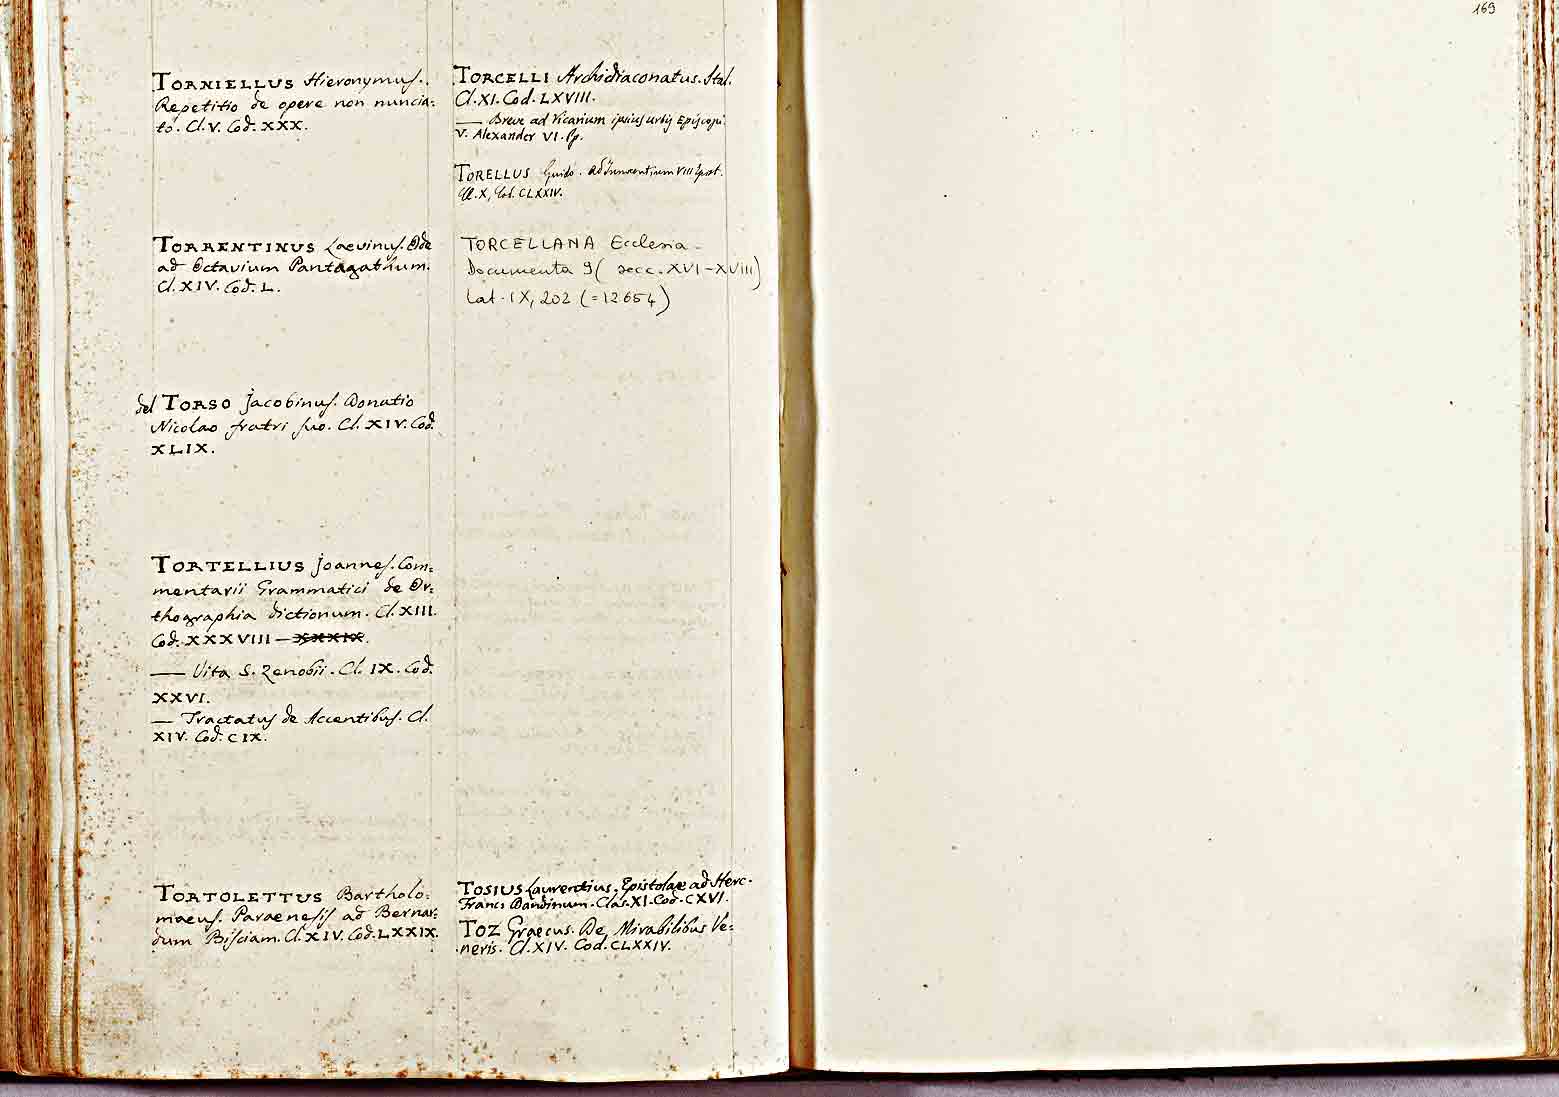 TORNIELLUS Hieronymus.
Repetitio de opere non nuncia-
to. Cl. V. Cod. XXX.
TORRENTINUS Laevinus. Ode
ad Octavium Pantagathum.
Cl. XIV. Cod. L.
del TORSO Jacobinus. Donatio
Nicolao fratri suo. Cl. XIV. Cod.
XLIX.
TORTELLIUS Joannes. Com=
mentarii Grammatici de Or=
thographia dictionum. Cl. XIII.
Cod. XXXVIII — XXXIX.
— Vita S. Zenobii. Cl. IX. Cod.
XXVI.
— Tractatus de Accentibus. Cl.
XIV. Cod. CIX.
TORTOLETTUS Bartholo=
maeus. Paraenesis ad Bernar=
dum Bisciam. Cl. XIV. Cod. LXXIX.
TORCELLI Archidiaconatus. Ital.
Cl. XI. Cod. LXVIII.
— Breve ad Vicarium ipsius urbis Episcopi
V. Alexander VI. Pp.
TORELLUS Guido. ad Innocentium VIII Epist.
Cl. X, Cod. CLXXIV.
TORCELLANA Ecclesia -
Documenta 9 ( secc. XVI - XVIII)
Lat. IX, 202 (= 12654)
TOSIUS Laurentius, Epistolae ad Herc.
Franc. Dandinum. Clas. XI. Cod. CXVI.
TOZ Graecus. De Mirabilibus Ve=
neris. Cl. XIV. Cod. CLXXIV.
169